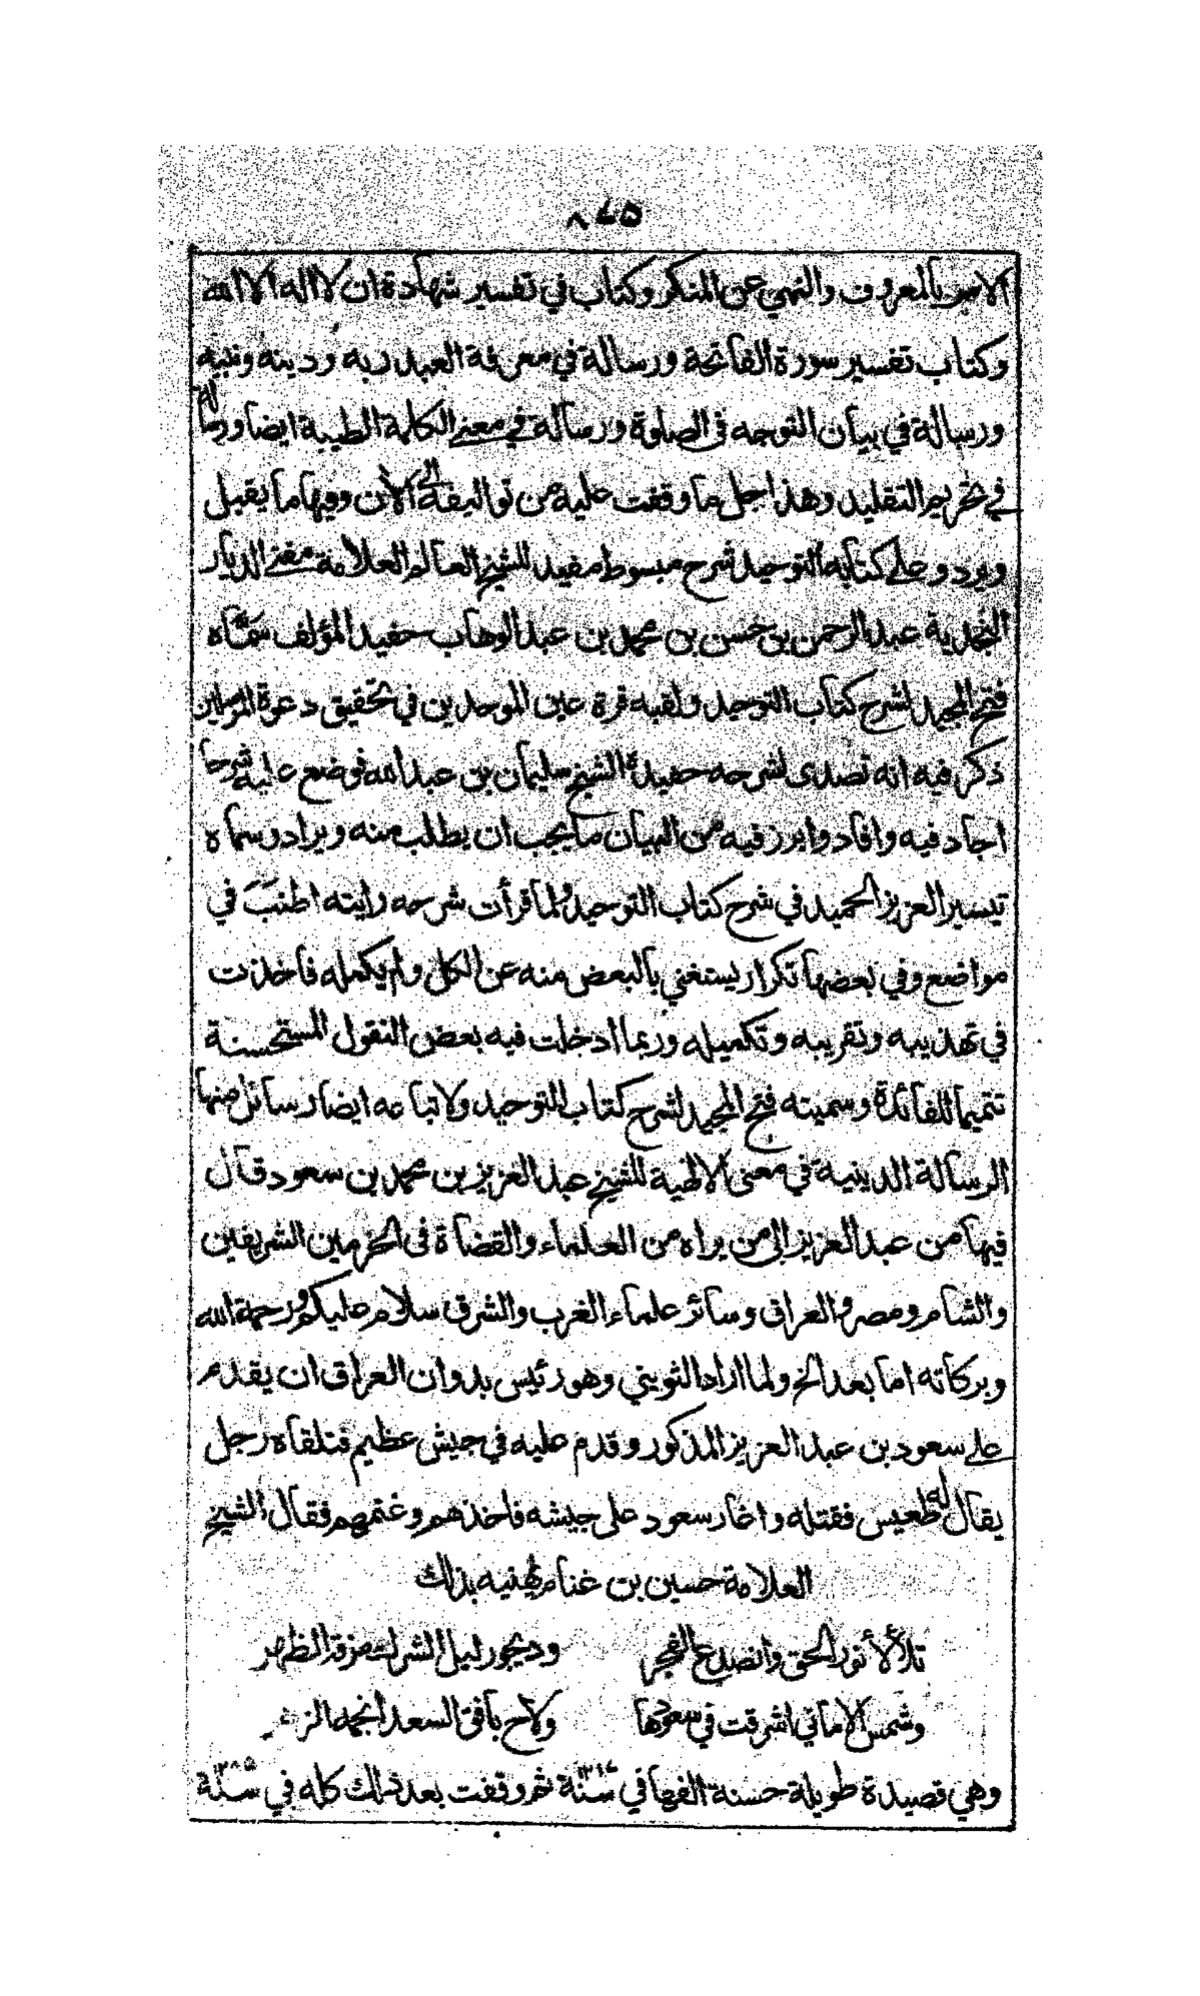 ٨٧٥
الامر بالمعروف والنهي عن المنكر وكتاب في تفسير شهادة ان لا اله الا الله
وكتاب تفسير سورة الفاتحة ورسالة في معرفة العبد ربه ودينه ونبيه
ورسالة في بيان التوجه في الصلوة ورسالة في معنى الكلمة الطيبة ايضا ورسالة
في تحرير التقليد وهذا جل ما وقفت عليه من تواليفه الى الآن وفيها ما يقبل
ويرد وعلى كتابه التوحيد شرح مبسوط مفيد للشيخ العالم العلامة مفتي الديار
النجدية عبد الرحمن بن حسن بن محمد بن عبد الوهاب حفيد المؤلف سماه
فتح المجيد لشرح كتاب التوحيد ولقبه قرة عين الموحدين في تحقيق دعوة المرسلين
ذكر فيه انه تصدى لشرحه حفيده الشيخ سليمان بن عبد الله فوضع عليه شرحا
اجاد فيه وافاد وابرز فيه من البيان ما يجب ان يطلب منه ويراد وسماه
تيسير العزيز الحميد في شرح كتاب التوحيد ولما قرأت شرحه رايته اطنب في
مواضع وفي بعضها تكرار يستغني بالبعض منه عن الكل ولم يكمله فاخذت
في تهذيبه وتقريبه وتكميله وربما ادخلت فيه بعض النقول المستحسنة
تتميما للفائدة وسميته فتح المجيد لشرح كتاب التوحيد ولاتباعه ايضا رسائل منها
الرسالة الدينية في معنى الالهية للشيخ عبد العزيز بن محمد بن سعود قال
فيها من عبد العزيز الى من يراه من العلماء والقضاة في الحرمين الشريفين
والشام ومصر والعراق وسائر علماء الغرب والشرق سلام عليكم ورحمة الله
وبركاته اما بعد الخ ولما اراد الثويني وهو رئيس بدوان العراق ان يقدم
على سعود بن عبد العزيز المذكور وقدم عليه في جيش عظيم فتلقاه رجل
يقال له طعيس فقتله واغار سعود على جيشه فاخذهم وغنمهم فقال الشيخ
العلامة حسين بن غنام يهنيه بذلك
تلألأ نور الحق وانصدع الفجر وديجور ليل الشرك مزقه الظهر
وشمس الاماني اشرقت في سعودها ولاح بأفق السعد انجمه الزهر
وهي قصيدة طويلة حسنة الفها في سنة ١٢١٢ ثم وقفت بعد ذلك كله في سنة ١٢٨٥